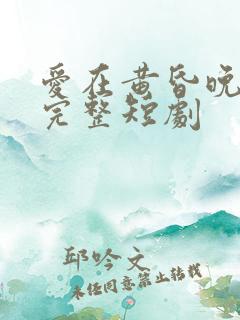 愛在黄昏晚
完整短劇
邱吟文
未经同意禁止转载